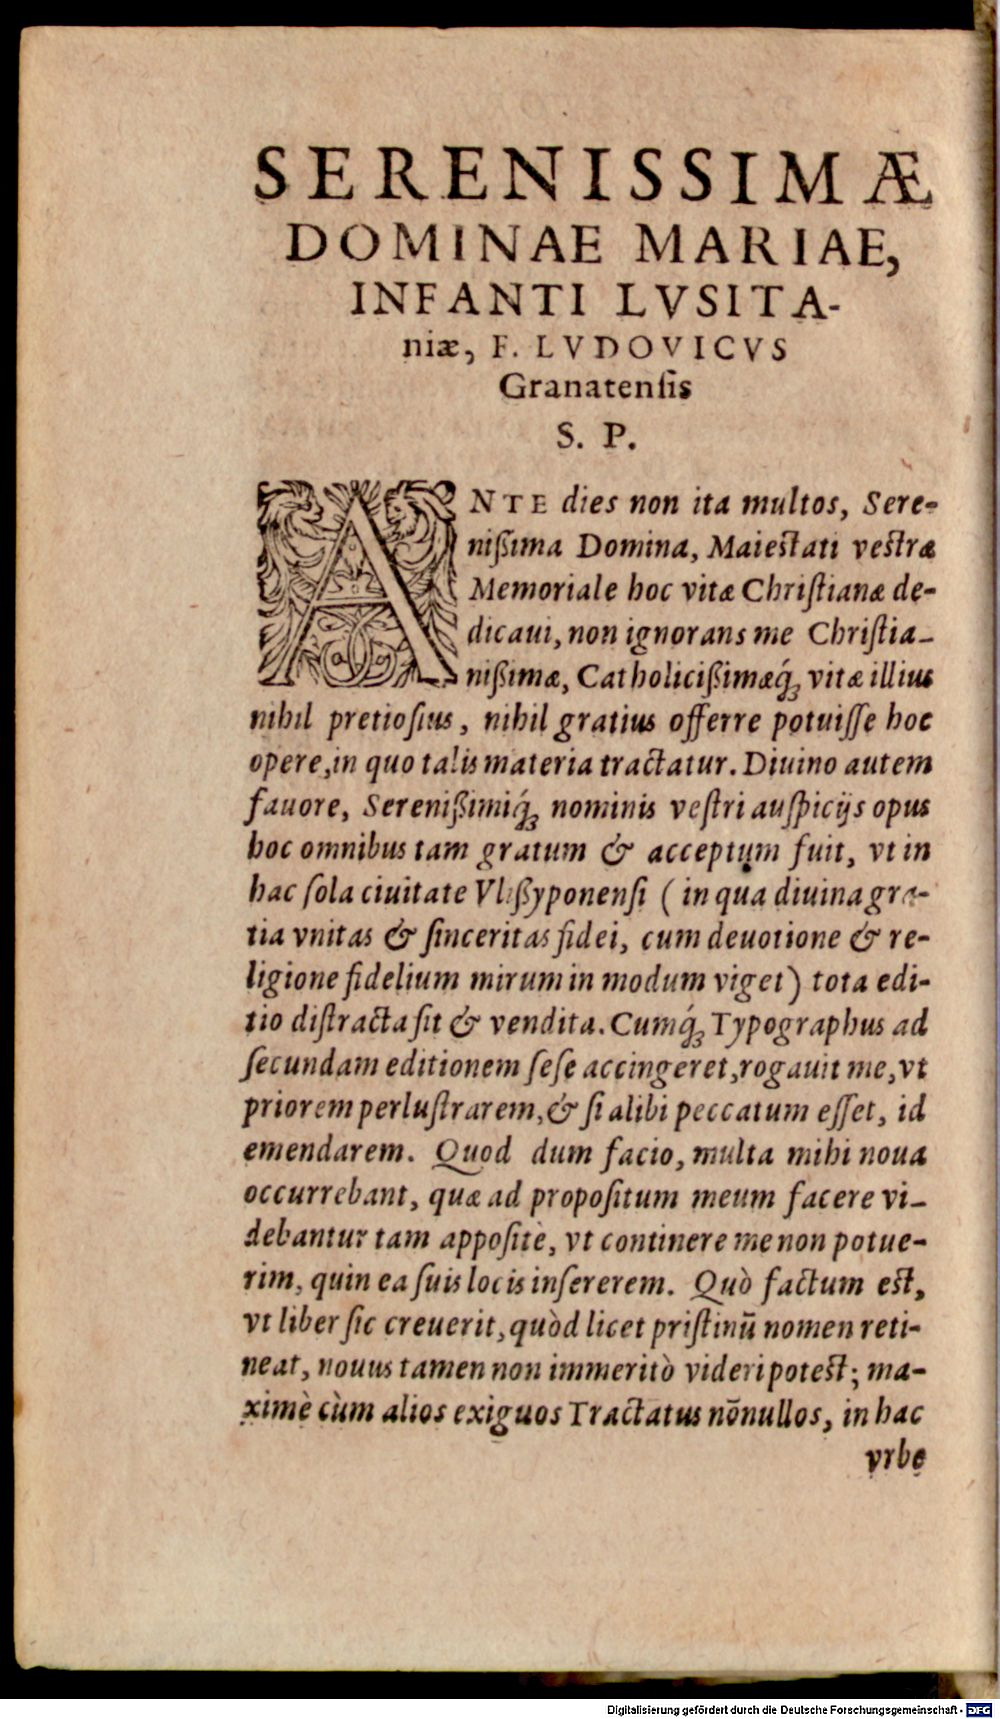 SERENISSIMÆ
DOMINAE MARIAE,
INFANTI LVSITA-
niæ, F. LVDOVICVS
Granatenſis
S. P.
ANTE dies non ita multos, Sere-
nißima Domina, Maieſtati veſtræ
Memoriale hoc vitæ Chriſtianæ de-
dicaui, non ignorans me Chriſtia-
nißimæ, Catholicißimæq́ꝫ vitæ illius
nihil pretioſius, nihil gratius offerre potuiſſe hoc
opere, in quo talis materia tractatur. Diuino autem
fauore, Serenißimiq́ꝫ nominis veſtri auſpicijs opus
hoc omnibus tam gratum & acceptum fuit, vt in
hac ſola ciuitate Vlißyponenſi (in qua diuina gra-
tia vnitas & ſinceritas fidei, cum deuotione & re-
ligione fidelium mirum in modum viget) tota edi-
tio diſtracta ſit & vendita. Cumq́ꝫ Typographus ad
ſecundam editionem ſeſe accingeret, rogauit me, vt
priorem perluſtrarem, & ſi alibi peccatum eſſet, id
emendarem. Quod dum facio, multa mihi noua
occurrebant, quæ ad propoſitum meum facere vi-
debantur tam appoſitè, vt continere me non potue-
rim, quin ea ſuis locis inſererem. Quò factum eſt,
vt liber ſic creuerit, quòd licet priſtinū nomen reti-
neat, nouus tamen non immeritò videri poteſt; ma-
ximè cùm alios exiguos Tractatus nōnullos, in hac
vrbe
Digitalisierung gefördert durch die Deutsche Forschungsgemeinschaft - DFG